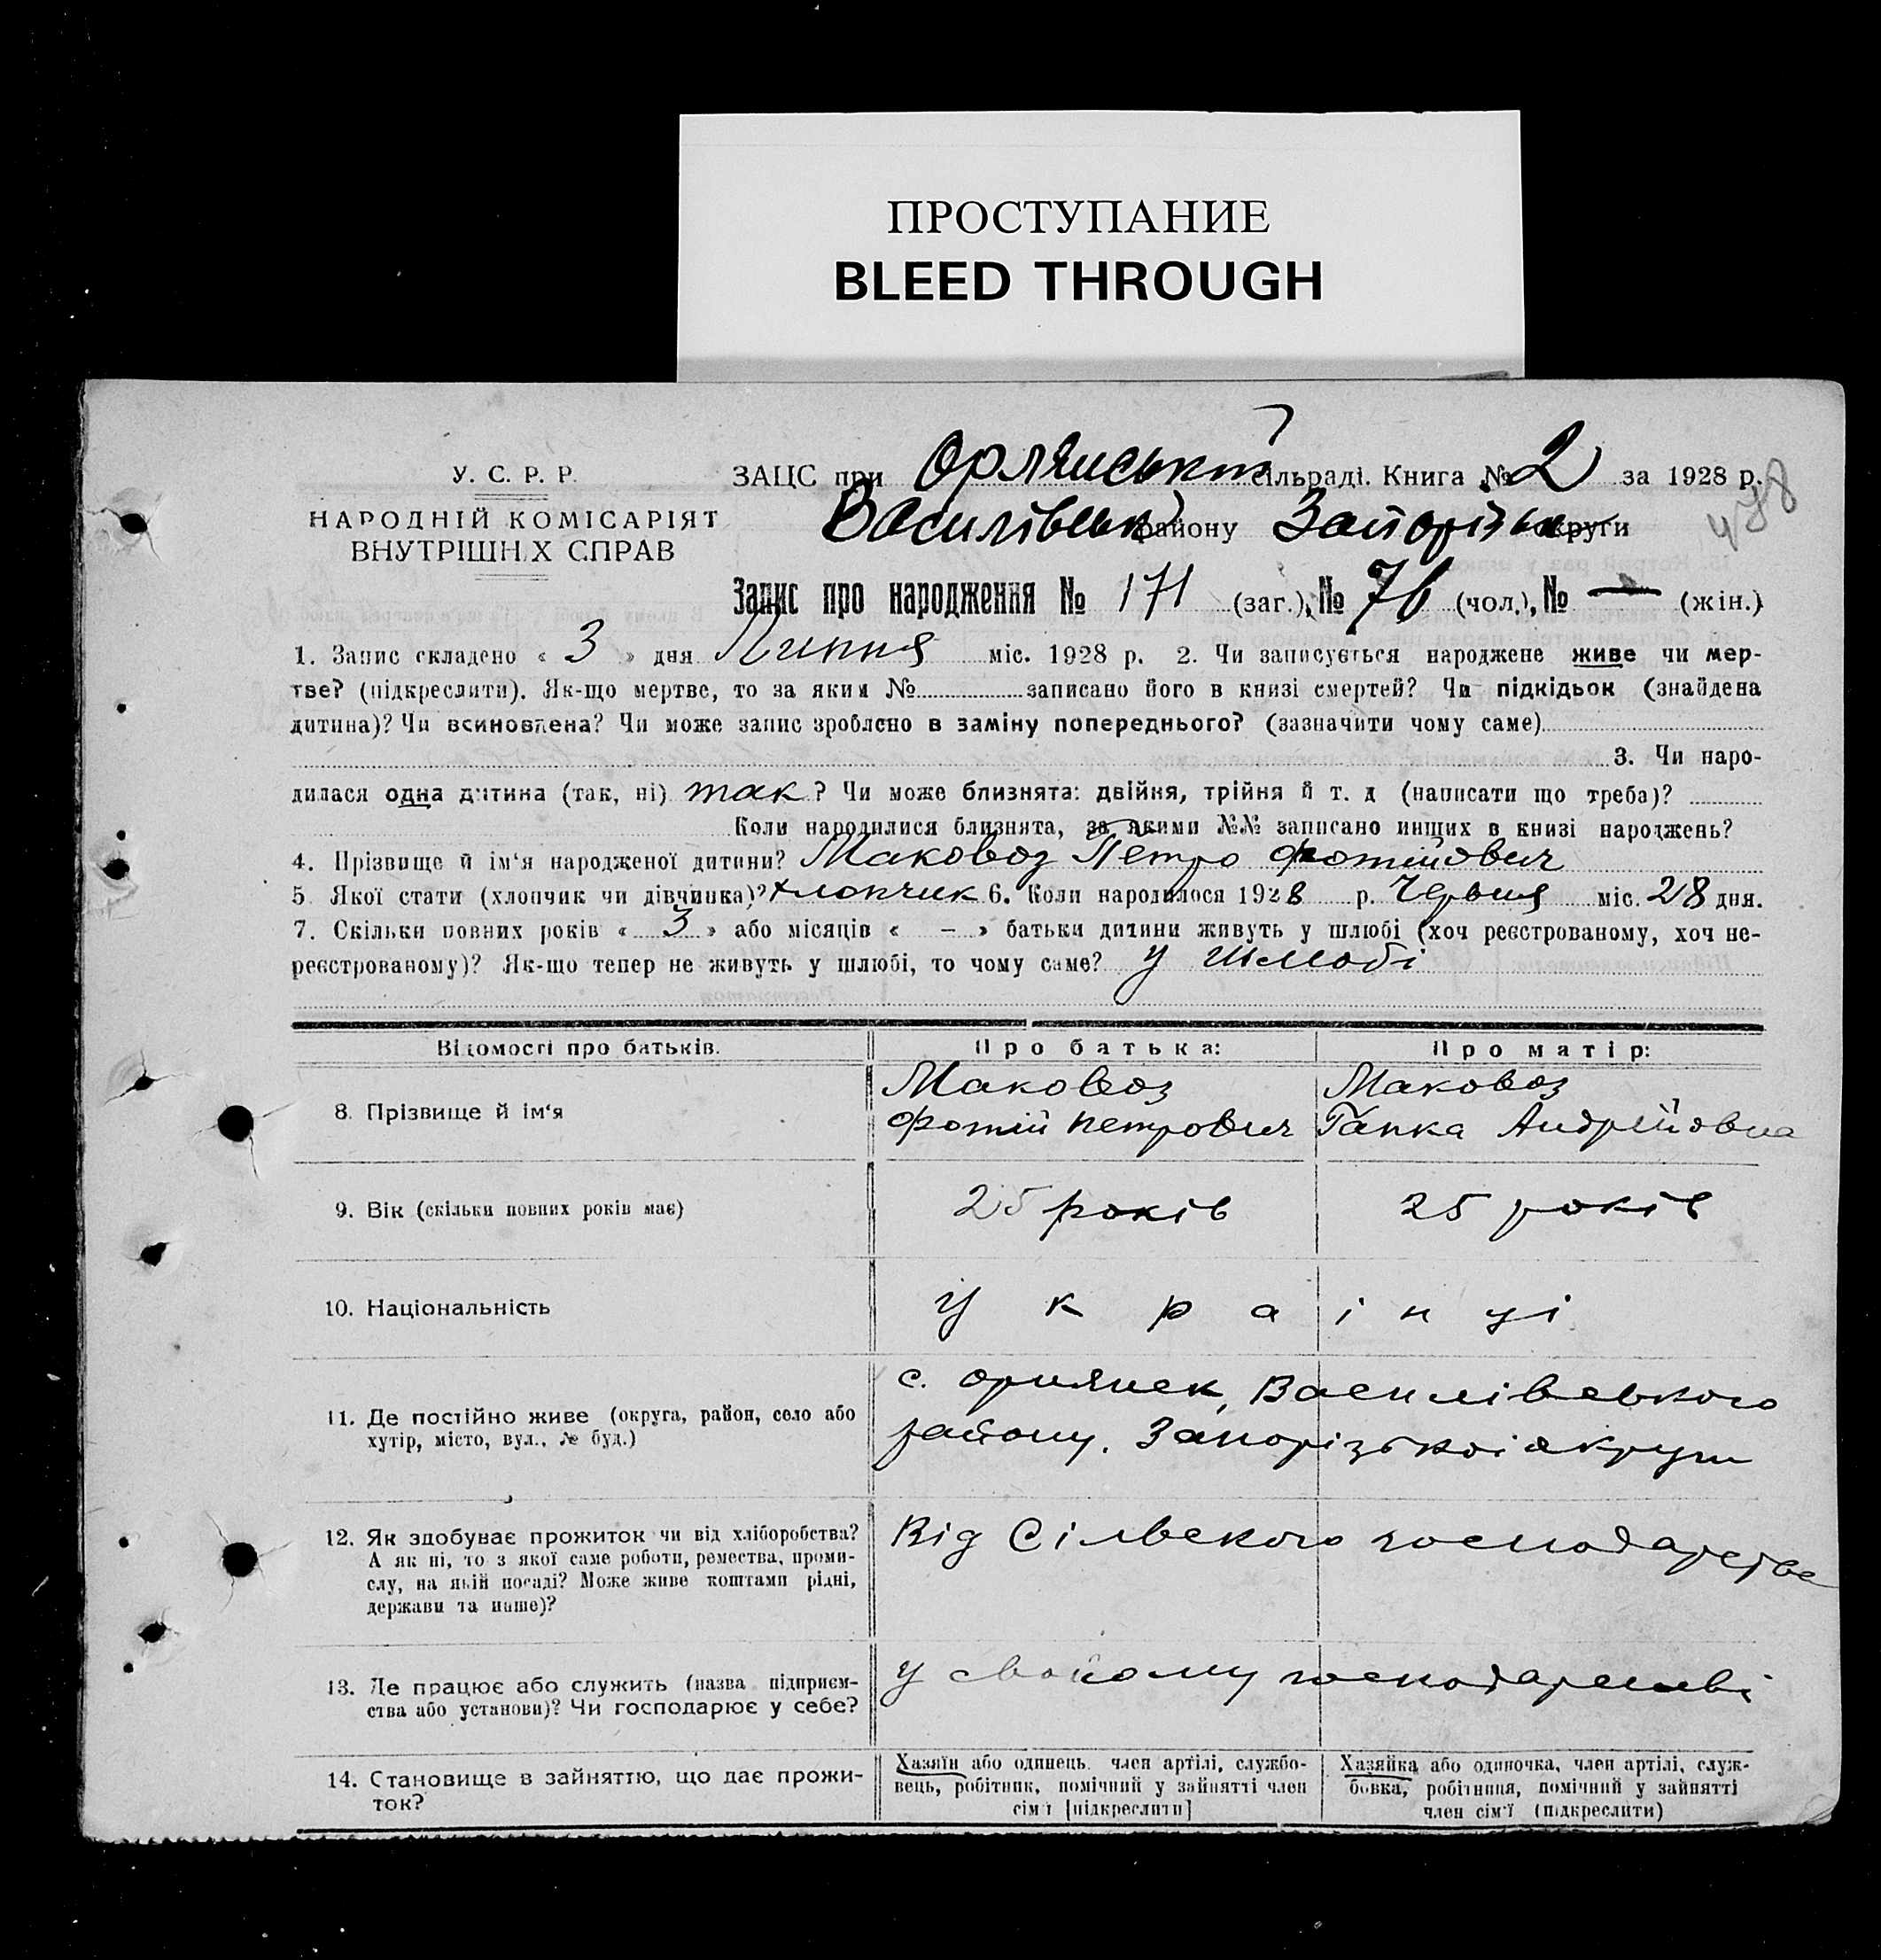 ПРОСТУПАНИЕ
BLEED THROUGH
У. С. Р. Р.
НАРОДНІЙ КОМІСАРІЯТ
ВНУТРІШНІХ СПРАВ
ЗАЦС при Орлянській сільраді. Книга № 2 за 1928 р.
478
Василівськ району Запорізьк округи
Запис про народження № 171 (заг.), № 76 (чол.), № — (жін.)
1. Запис складено « 3 » дня Липня міс. 1928 р. 2. Чи записується народжене живе чи мер-
тве? (підкреслити). Як-що мертве, то за яким № записано його в книзі смертей? Чи підкідьок (знайдена
дитина)? Чи всиновлена? Чи може запис зроблено в заміну попереднього? (зазначити чому саме)
3. Чи наро-
дилася одна дитина (так, ні) так ? Чи може близнята: двійня, трійня й т. д (написати що треба)?
Коли народилися близнята, за якими №№ записано инших в книзі народжень?
4. Прізвище й ім'я народженої дитини? Маковоз Петро Фотийович
5 Якої стати (хлопчик чи дівчинка)? Хлопчик 6. Коли народилося 1928 р. Червня міс. 28 дня.
7. Скільки повних років « 3 » або місяців « - » батьки дитини живуть у шлюбі (хоч реєстрованому, хоч не-
реєстрованому)? Як-що тепер не живуть у шлюбі, то чому саме? У шлюбі
Відомості про батьків. Про батька: Про матір:
8. Прізвище й ім'я Маковоз Маковоз
Фотий Петрович Гапка Андрійовна
9. Вік (скільки повних років має) 25 років 25 років
10. Національність Україінці
11. Де постійно живе (округа, район, село або
хутір, місто, вул., № буд.)
с. Орлянск, Василівського
району, Запорізької округи
12. Як здобуває прожиток чи від хліборобства?
А як ні, то з якої саме роботи, ремества, проми-
слу, на якій посаді? Може живе коштами рідні,
держави та инше)?
Від Сільского господарства
13. Де працює або служить (назва підприєм-
ства або установи)? Чи господарює у себе?
У свойому господарстві
14. Становище в зайняттю, що дає прожи-
ток?
Хазяїн або одинець, член артілі, службо-
вець, робітник, помічний у зайнятті член
сім'ї [підкреслити]
Хазяйка або одиночка, член артілі, служ-
бовка, робітниця, помічний у зайнятті
член сім'ї (підкреслити)